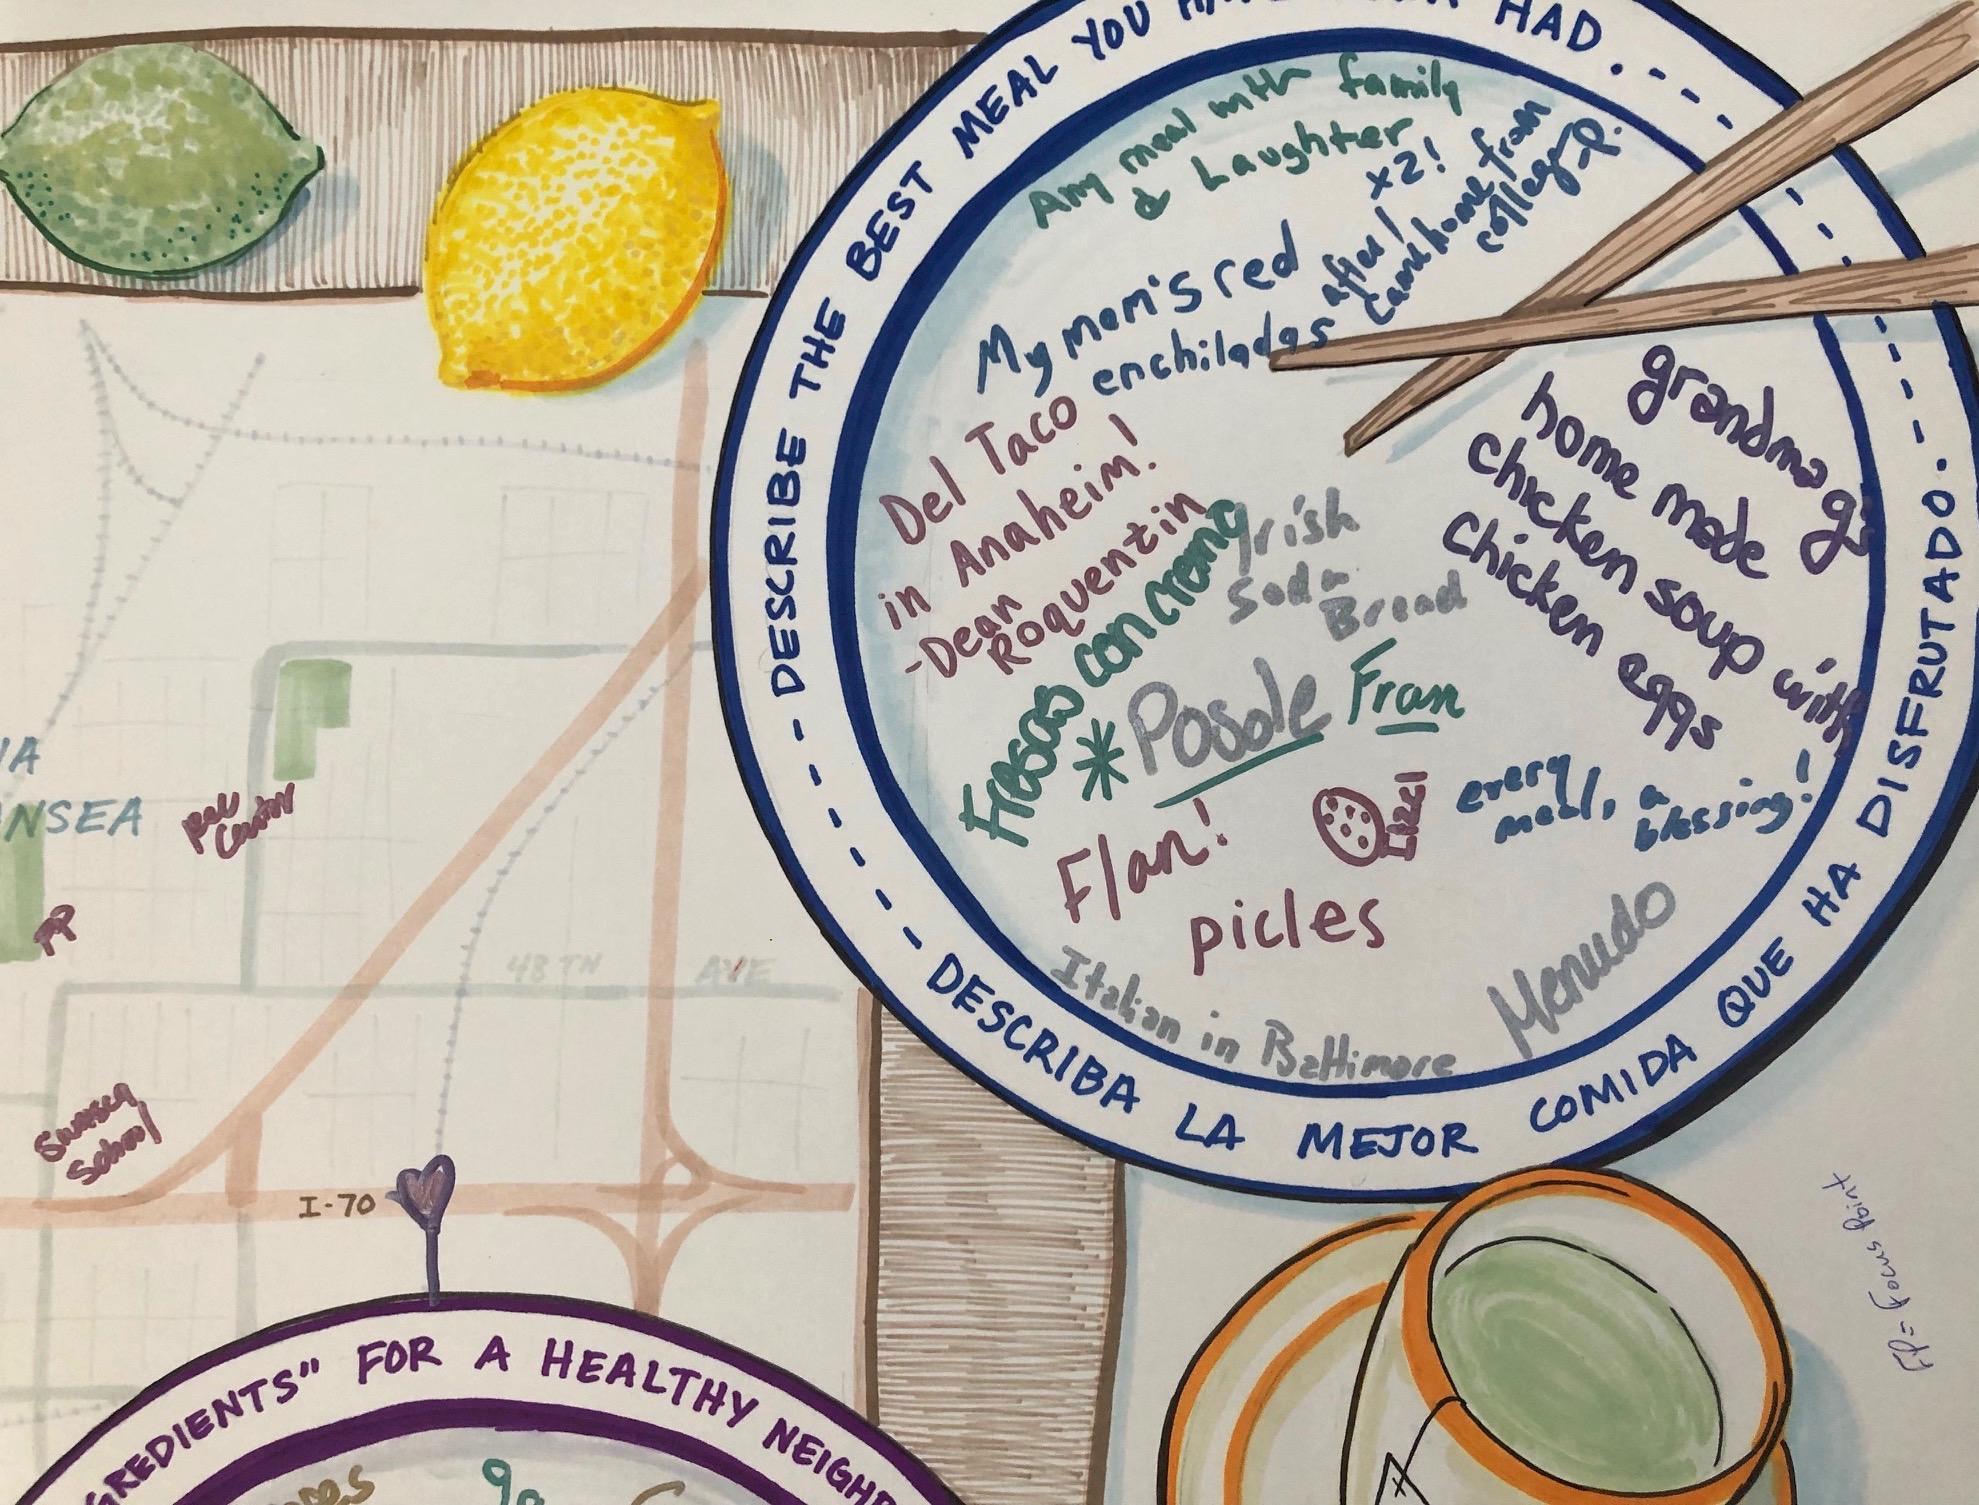 DESCRIBE THE BEST MEAL YOU HAD.
Any meal with family
& Laughter
x2!
My mom's red
enchiladas
after I
came home from
college
Del Taco
in Anaheim!
-Dean
Roquentin
Fresas con crema
Irish
Soda
Bread
grandma's
home made
chicken soup with
chicken eggs
* Posole
Fran
every
meal, a
blessing!
Flan!
picles
Italian in Baltimore
Menudo
DESCRIBA LA MEJOR COMIDA QUE HA DISFRUTADO.
NSEA
Rec
Center
FP
48TH AVE
Swansea
School
I-70
GREDIENTS" FOR A HEALTHY NEIGHB
FP = Focus Point